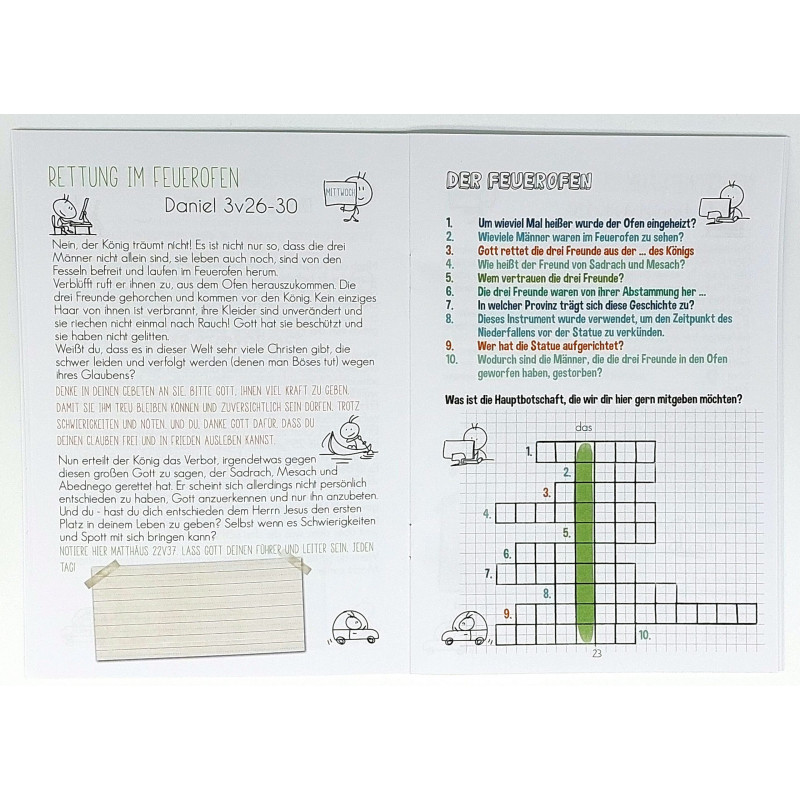 RETTUNG IM FEUEROFEN
MITTWOCH
Daniel 3v26-30
Nein, der König träumt nicht! Es ist nicht nur so, dass die drei
Männer nicht allein sind, sie leben auch noch, sind von den
Fesseln befreit und laufen im Feuerofen herum.
Verblüfft ruft er ihnen zu, aus dem Ofen herauszukommen. Die
drei Freunde gehorchen und kommen vor den König. Kein einziges
Haar von ihnen ist verbrannt, ihre Kleider sind unverändert und
sie riechen nicht einmal nach Rauch! Gott hat sie beschützt und
sie haben nicht gelitten.
Weißt du, dass es in dieser Welt sehr viele Christen gibt, die
schwer leiden und verfolgt werden (denen man Böses tut) wegen
ihres Glaubens?
DENKE IN DEINEN GEBETEN AN SIE. BITTE GOTT, IHNEN VIEL KRAFT ZU GEBEN,
DAMIT SIE IHM TREU BLEIBEN KÖNNEN UND ZUVERSICHTLICH SEIN DÜRFEN, TROTZ
SCHWIERIGKEITEN UND NÖTEN. UND DU, DANKE GOTT DAFÜR, DASS DU
DEINEN GLAUBEN FREI UND IN FRIEDEN AUSLEBEN KANNST.
Nun erteilt der König das Verbot, irgendetwas gegen
diesen großen Gott zu sagen, der Sadrach, Mesach und
Abednego gerettet hat. Er scheint sich allerdings nicht persönlich
entschieden zu haben, Gott anzuerkennen und nur ihn anzubeten.
Und du - hast du dich entschieden dem Herrn Jesus den ersten
Platz in deinem Leben zu geben? Selbst wenn es Schwierigkeiten
und Spott mit sich bringen kann?
NOTIERE HIER MATTHÄUS 22V37. LASS GOTT DEINEN FÜHRER UND LEITER SEIN, JEDEN
TAG!
DER FEUEROFEN
1. Um wieviel Mal heißer wurde der Ofen eingeheizt?
2. Wieviele Männer waren im Feuerofen zu sehen?
3. Gott rettet die drei Freunde aus der ... des Königs
4. Wie heißt der Freund von Sadrach und Mesach?
5. Wem vertrauen die drei Freunde?
6. Die drei Freunde waren von ihrer Abstammung her ...
7. In welcher Provinz trägt sich diese Geschichte zu?
8. Dieses Instrument wurde verwendet, um den Zeitpunkt des
Niederfallens vor der Statue zu verkünden.
9. Wer hat die Statue aufgerichtet?
10. Wodurch sind die Männer, die die drei Freunde in den Ofen
geworfen haben, gestorben?
Was ist die Hauptbotschaft, die wir dir hier gern mitgeben möchten?
das
1.
2.
3.
4.
5.
6.
7.
8.
9.
10.
23